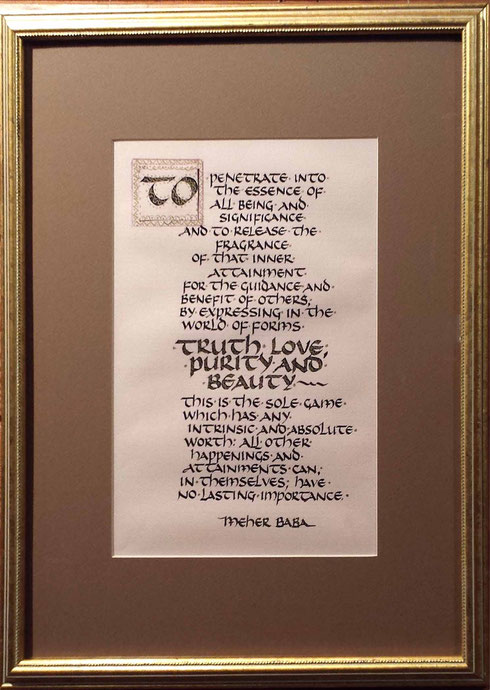 TO PENETRATE INTO
THE ESSENCE OF
ALL BEING AND
SIGNIFICANCE
AND TO RELEASE THE
FRAGRANCE
OF THAT INNER
ATTAINMENT
FOR THE GUIDANCE AND
BENEFIT OF OTHERS,
BY EXPRESSING IN THE
WORLD OF FORMS
TRUTH, LOVE,
PURITY AND
BEAUTY
THIS IS THE SOLE GAME
WHICH HAS ANY
INTRINSIC AND ABSOLUTE
WORTH. ALL OTHER
HAPPENINGS AND
ATTAINMENTS CAN,
IN THEMSELVES, HAVE
NO LASTING IMPORTANCE.
MEHER BABA